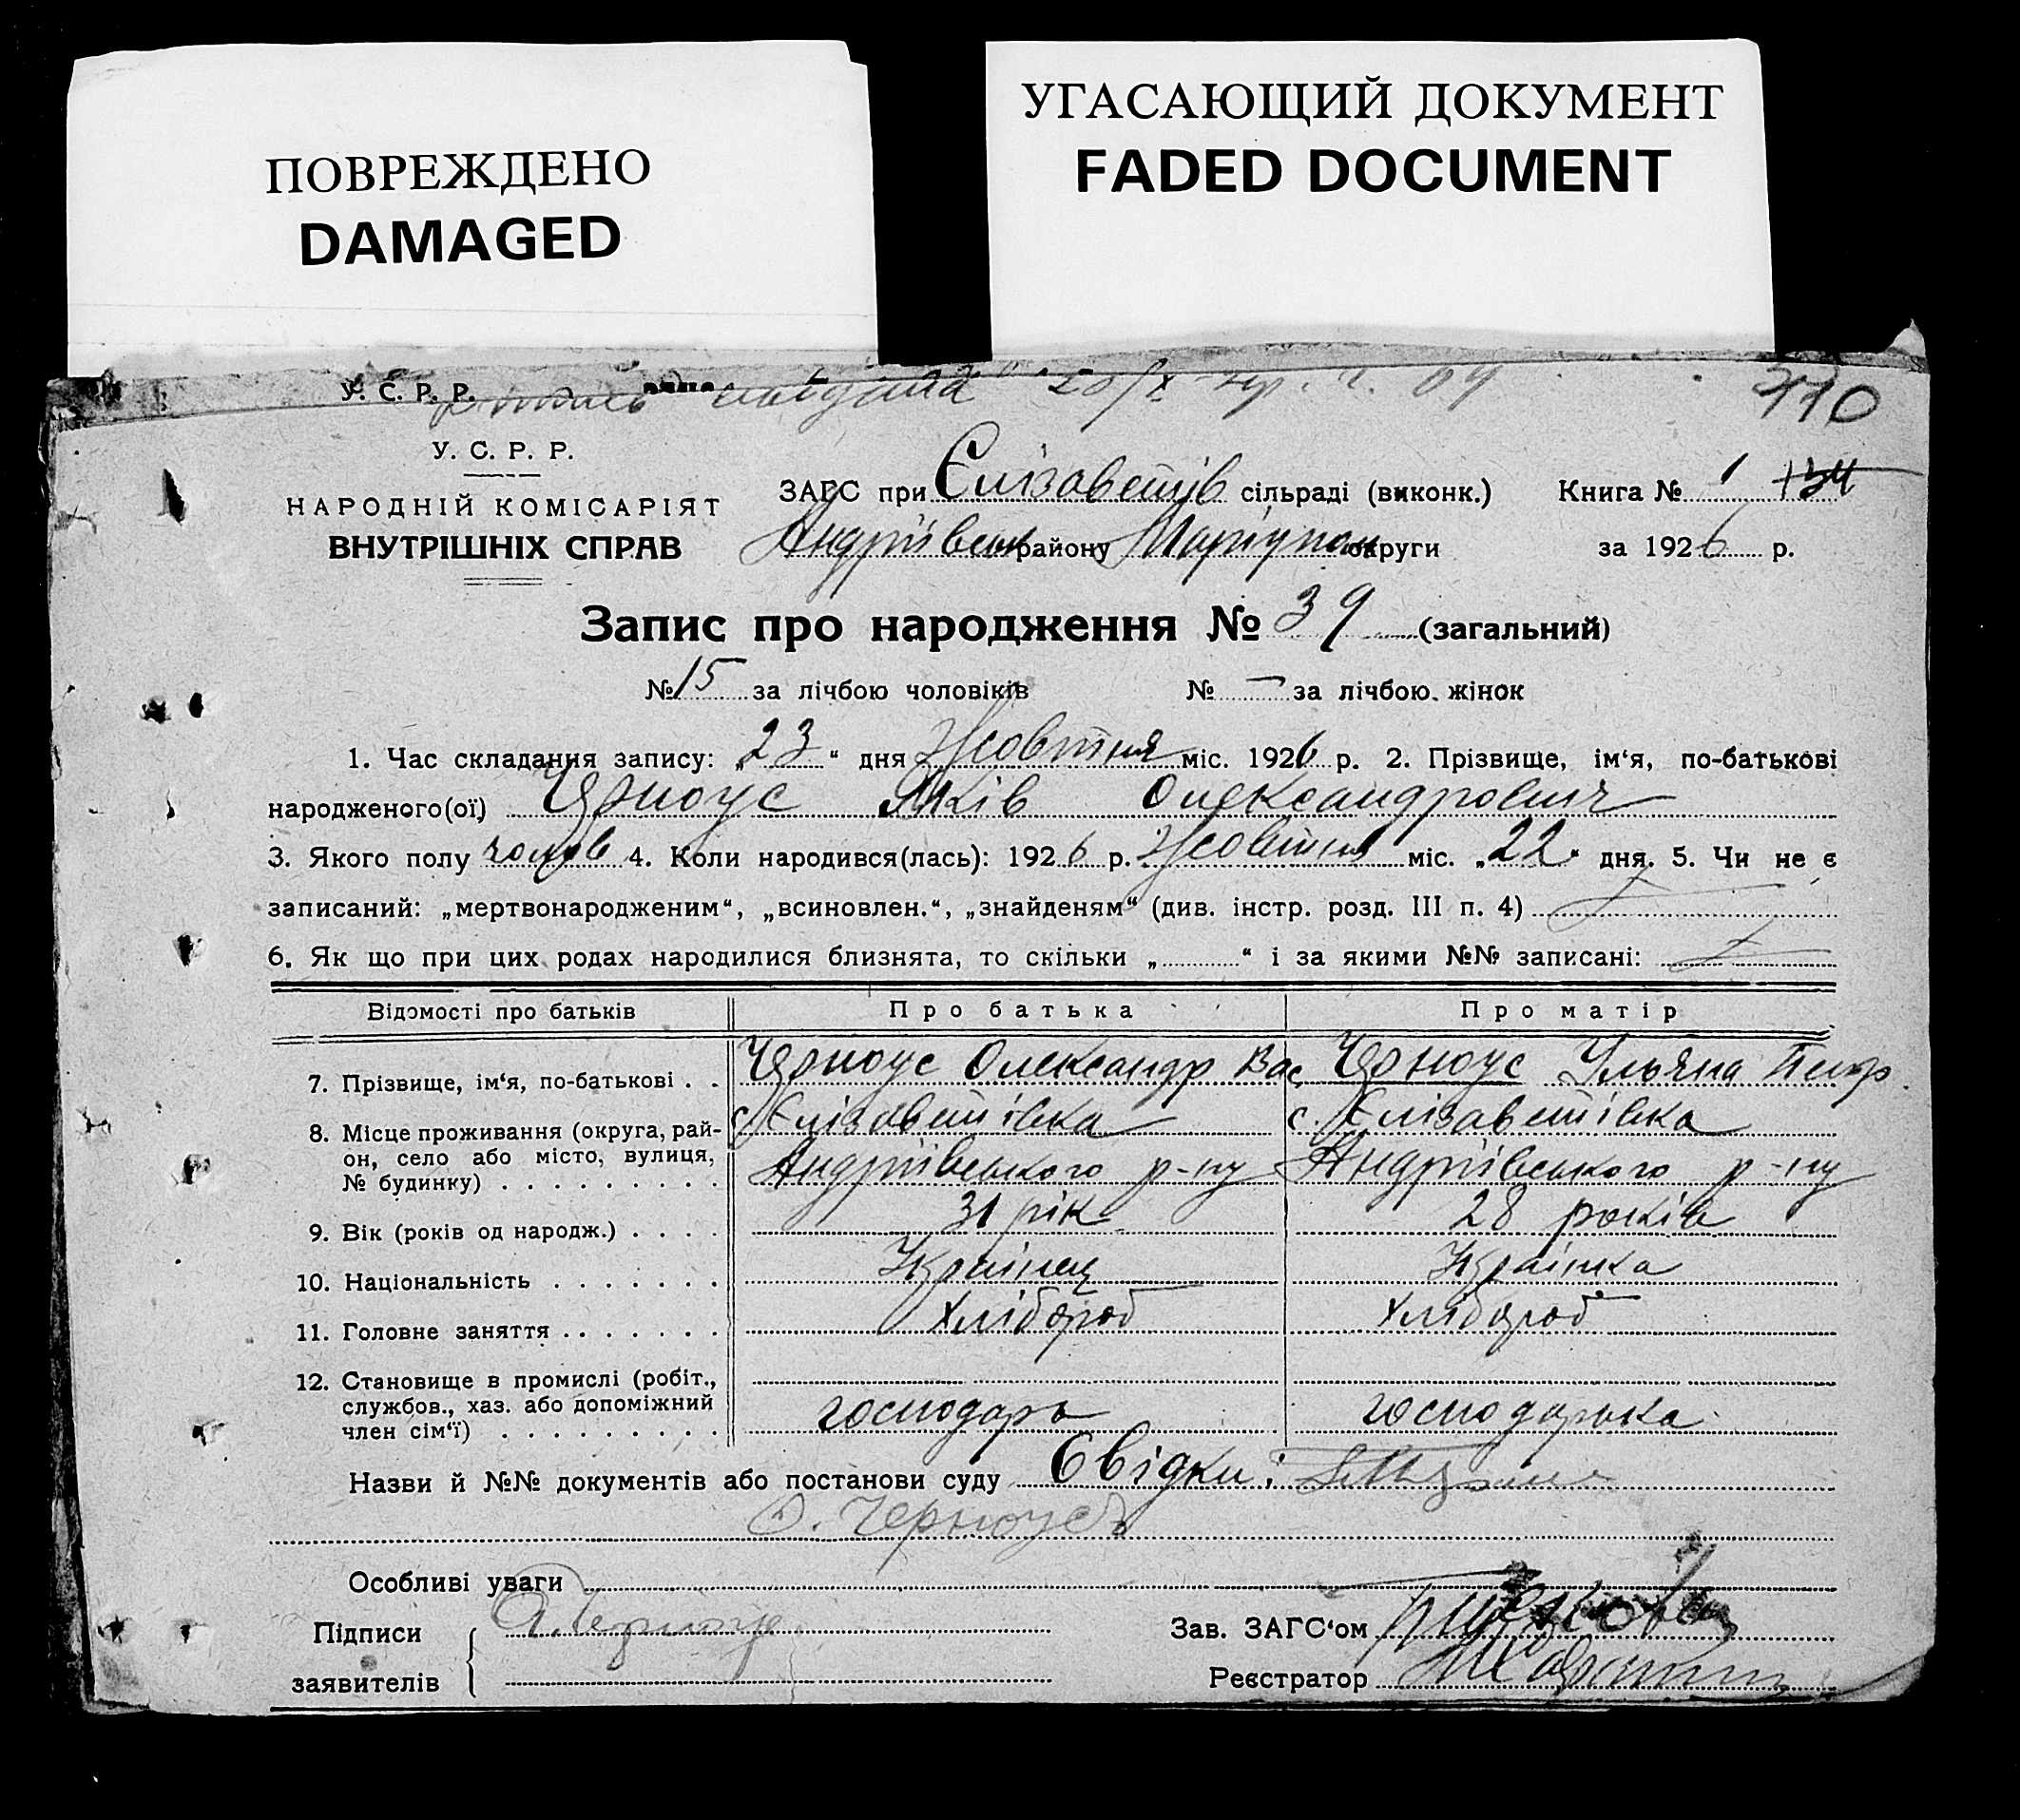 ПОВРЕЖДЕНО
DAMAGED
УГАСАЮЩИЙ ДОКУМЕНТ
FADED DOCUMENT
У. С. Р. Р.
110
У. С. Р. Р.
НАРОДНІЙ КОМІСАРІЯТ
ВНУТРІШНІХ СПРАВ
ЗАГС при Єлізаветів сільраді (виконк.) Книга № 1 134
Андріївськ району Маріупол округи за 1926 р.
Запис про народження № 39 (загальний)
№ 15 за лічбою чоловіків № — за лічбою жінок
1. Час складання запису: „23“ дня Жовтня міс. 1926 р. 2. Прізвище, ім‘я, по-батькові
народженого(ої) Чорноус Яків Олександрович
3. Якого полу чолов 4. Коли народився(лась): 1926 р. Жовтня міс. „22“ дня. 5. Чи не є
записаний: „мертвонародженим“, „всиновлен.“, „знайденям“ (див. інстр. розд. III п. 4)
6. Як що при цих родах народилися близнята, то скільки „ “ і за якими №№ записані:
Відомості про батьків Про батька Про матір
7. Прізвище, ім‘я, по-батькові . . Чорноус Олександр Вас. Чорноус Ульяна Петр.
8. Місце проживання (округа, рай- с. Єлізаветівка с. Єлізаветівка
он, село або місто, вулиця, Андріївського р-ну Андріївського р-ну
№ будинку)
9. Вік (років од народж.) . . . . 31 рік 28 років
10. Національність Українец Українка
11. Головне заняття Хлібороб Хлібороб
12. Становище в промислі (робіт.,
службов., хаз. або допоміжний господарь господарька
член сім‘ї)
Назви й №№ документів або постанови суду Свідки:
О. Черноусъ
Особливі уваги
Підписи Зав. ЗАГС‘ом
заявителів Реєстратор